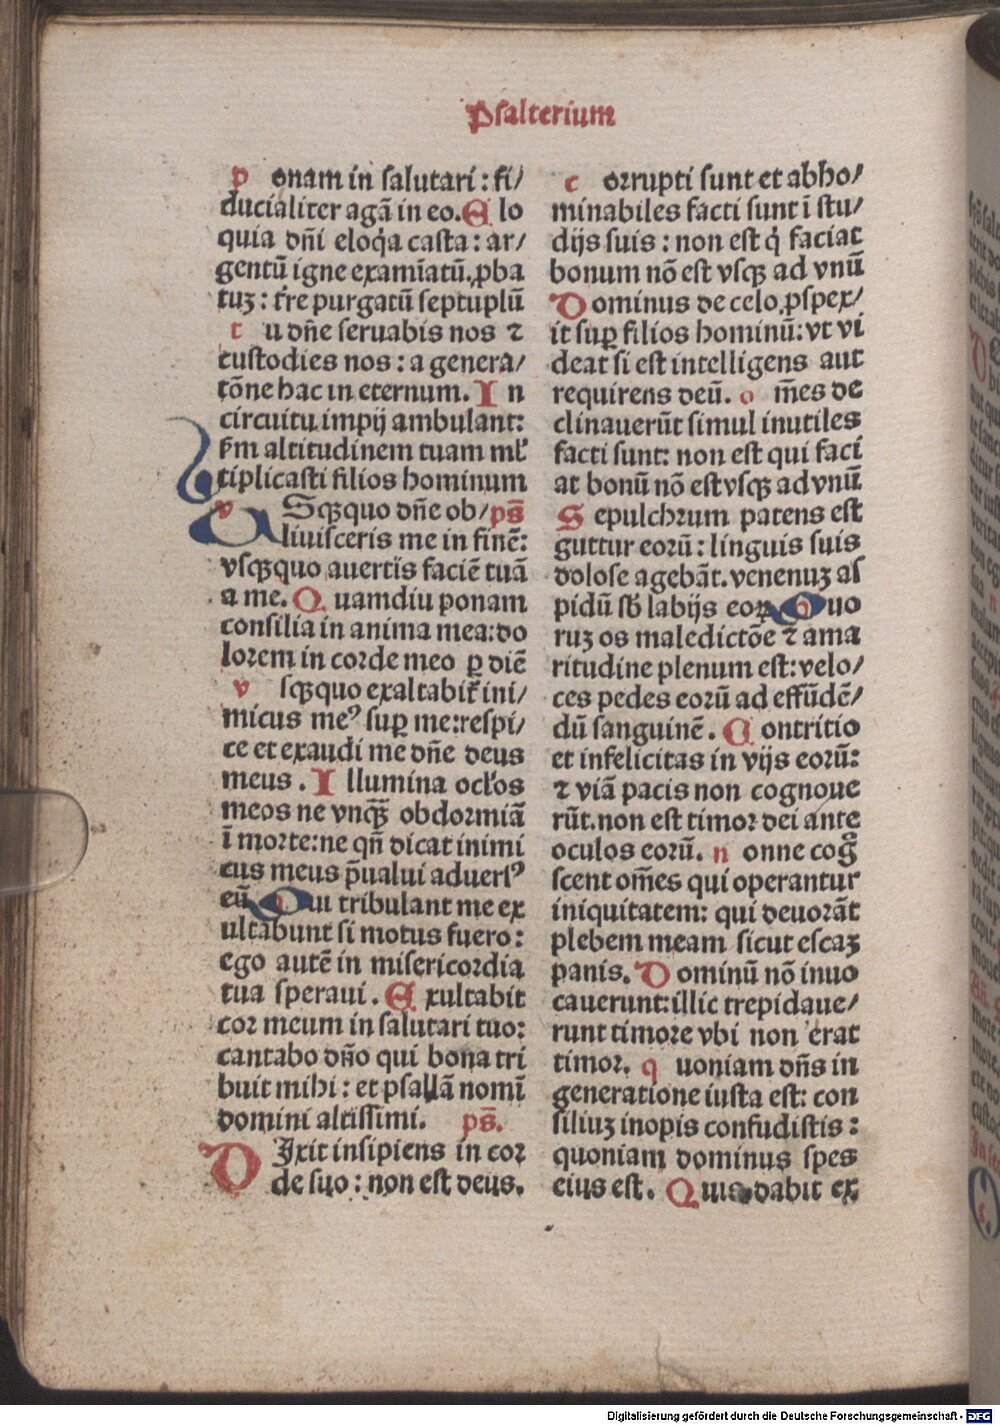 Psalterium
p onam in salutari : fi/
ducialiter agā in eo. E lo
quia dñi eloq̇a casta : ar/
gentū igne examīatū. ꝓba
tuꝫ : tr̄e purgatū septuplū
t u dn̄e seruabis nos ⁊
custodies nos : a genera/
tōne hac in eternum. I n
circuitu impij ambulant:
ẜm altitudinem tuam ml̄
tiplicasti filios hominum
V Sqꝫquo dn̄e ob/ ps̄
liuisceris me in finē:
vsqꝫquo auertis faciē tuā
a me. Q uamdiu ponam
consilia in anima mea: do
lorem in corde meo ꝑ diē
v sqꝫquo exaltabit̄ ini/
micus meꝰ suꝑ me: respi/
ce et exaudi me dn̄e deus
meus . I llumina ocl̄os
meos ne vnqꝫ̄ obdormiā
ī morte: ne qn̄ dicat inimi
cus meus p̄ualui aduersꝰ
eū Q ui tribulant me ex
ultabunt si motus fuero :
ego autē in misericordia
tua speraui . E xultabit
cor meum in salutari tuo:
cantabo dn̄o qui bona tri
buit mihi : et psallā nomī
domini altissimi. ps̄.
D Ixit insipiens in cor
de suo : non est deus.
c orrupti sunt et abho/
minabiles facti sunt ī stu/
dijs suis : non est q̇ faciat
bonum nō est vsqꝫ ad vnū
D ominus de celo ꝓspex/
it suꝑ filios hominū: vt vi
deat si est intelligens aut
requirens deū. o m̄es de
clinauerūt simul inutiles
facti sunt: non est qui faci
at bonū nō est vsqꝫ ad vnū
S epulchrum patens est
guttur eorū : linguis suis
dolose agebāt. venenuꝫ as
pidū sb̄ labijs eoꝝ Q uo
ruꝫ os maledictōe ⁊ ama
ritudine plenum est: velo/
ces pedes eorū ad effūdē/
dū sanguinē . C ontritio
et infelicitas in vijs eorū:
⁊ viā pacis non cognoue
rūt. non est timor dei ante
oculos eorū. n onne cog̊
scent om̄es qui operantur
iniquitatem: qui deuorāt
plebem meam sicut escaꝫ
panis. D ominū nō inuo
cauerunt: illic trepidaue/
runt timore vbi non erat
timor. q uoniam dn̄s in
generatione iusta est: con
siliuꝫ inopis confudistis :
quoniam dominus spes
eius est . Q uis dabit ex
Digitalisierung gefördert durch die Deutsche Forschungsgemeinschaft - DFG